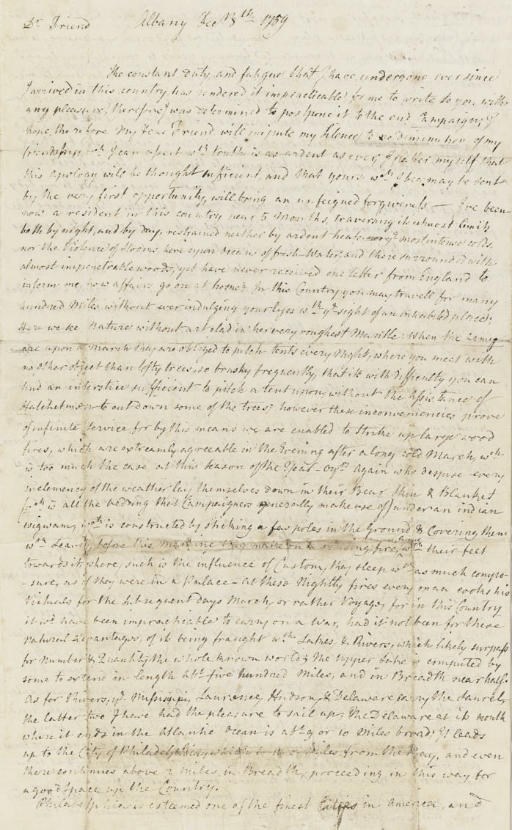 Dr. Friend Albany Decr 13th 1759
The constant Duty and fatigue that I have undergone ever since
I arrived in this country has rendered it impracticable for me to write to you with
any pleasure, therefore I was determined to postpone it to the end Campaigne, I
hope therefore My Dear Friend will impute my Silence to no diminution of my
friendship wch I can assert wth truth is as ardent as ever; I flatter myself that
this Apology will be thought sufficient and that yours wch I hope may be sent
by the very first opportunity, will bring an unfeigned forgiveness — I've been
now a resident in this country near Months, traversing its utmost limits
both by night and by day, restrained neither by ardent heats nor ye most intense colds,
nor the Violence of Storms here upon Oceans of fresh Water and these surrounded with
almost impenetrable woods, yet have never received one letter from England to
inform me how affairs go on at home. In this Country you may travell for many
hundred Miles without ever indulging your Eyes wth ye sight of an inhabited place.
Here we see Nature without art clad in her very roughest Mantle: When the Army
are upon a march they are obliged to pitch tents every Night, where you meet with
no other object than lofty trees so frequently, that it is with difficulty you can
find an interstice sufficient to pitch a tent upon, without the Assistance of
Hatchetmen to cut down some of the trees; however these inconveniencies prove
of infinite service for by this means we are enabled to strike up large wood
fires, which are extreamly agreeable in the Evening after a long cold March, wch
is too much the case at this season of the Year — Others again who despise every
inclemency of the weather lay themselves down in their Bear Skin & Blanket
wch is all the bedding that Campaigners generally make use of under an indian
wigwam, wch is constructed by sticking a few poles in the Ground & Covering them
wth Leaves, before this machine they make a fire, with their feet
towards it where, such is the influence of Custom, they sleep wth as much compo-
-sure, as if they were in a Palace — at these Nightly fires every man cooks his
Victuals for the subsequent days March, or rather Voyage, for in this Country
it wd have been impracticable to carry on a war, had it not been for these
Natural Advantages, of it being fraught wth Lakes & Rivers, which likely surpass
for Number & Quantity the whole known world; the upper Lake is computed by
some to extend in length abt five hundred Miles, and in Breadth near half.
As for Rivers, ye Missisippi, Laurence, Hudson, & Delaware carry the laurels,
the latter two I have had the pleasure to sail up; the Delaware at its mouth
where it ends in the Atlantic Ocean is abt 9 or 10 Miles broad; It leads
up to the City of Philadelphia, which is Miles from the Bay, and even
there continues above 2 miles in Breadth, proceeding in this way for
a good space up the Country.
Philadelphia is esteemed one of the finest Cities in America, and